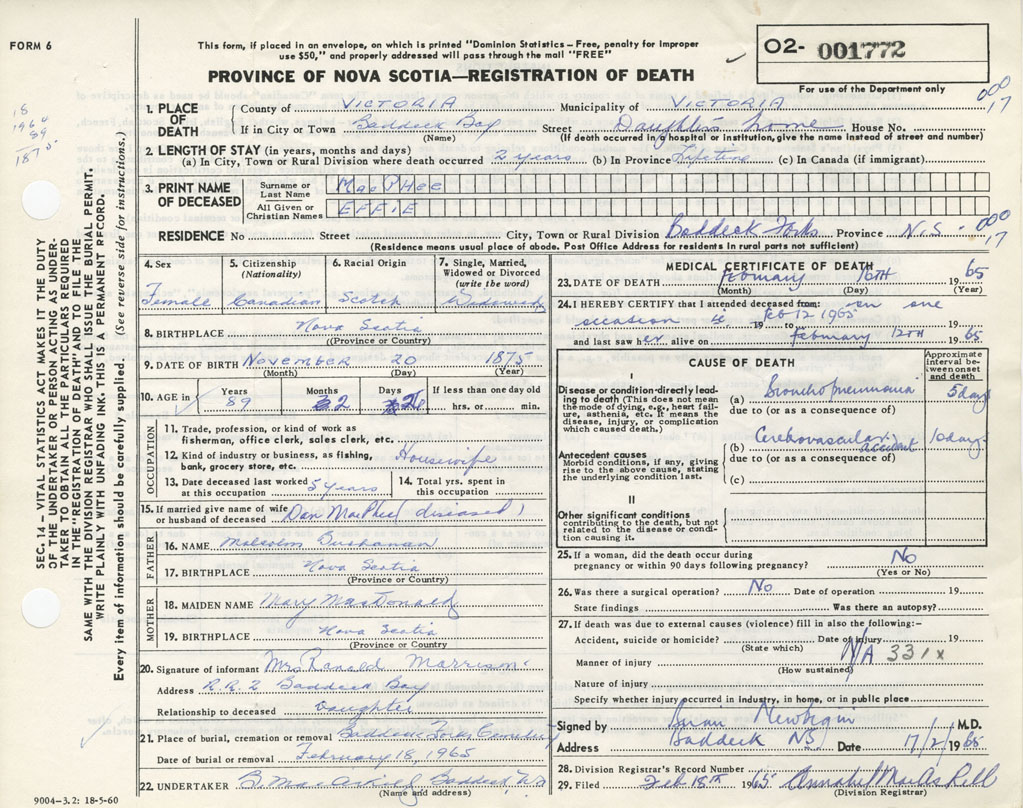 FORM 6
This form, if placed in an envelope, on which is printed "Dominion Statistics – Free, penalty for improper
use $50," and properly addressed will pass through the mail "FREE"
PROVINCE OF NOVA SCOTIA—REGISTRATION OF DEATH
O2- 001772
For use of the Department only
000
17
18
1964
89
1875
SEC. 14 – VITAL STATISTICS ACT MAKES IT THE DUTY
OF THE UNDERTAKER OR PERSON ACTING AS UNDER-
TAKER TO OBTAIN ALL THE PARTICULARS REQUIRED
IN THE "REGISTRATION OF DEATH" AND TO FILE THE
SAME WITH THE DIVISION REGISTRAR WHO SHALL ISSUE THE BURIAL PERMIT.
WRITE PLAINLY WITH UNFADING INK. THIS IS A PERMANENT RECORD.
Every item of information should be carefully supplied. (See reverse side for instructions.)
1. PLACE OF DEATH County of VICTORIA Municipality of VICTORIA
If in City or Town Baddeck Bay Street Daughter's home House No.
(Name) (If death occurred in a hospital or institution, give the name instead of street and number)
2. LENGTH OF STAY (in years, months and days)
(a) In City, Town or Rural Division where death occurred 2 years (b) In Province Lifetime (c) In Canada (if immigrant)
3. PRINT NAME OF DECEASED Surname or Last Name MacPHee
All Given or Christian Names EFFIE
RESIDENCE No Street City, Town or Rural Division Baddeck Forks Province N.S. 000
17
(Residence means usual place of abode. Post Office Address for residents in rural parts not sufficient)
4. Sex 5. Citizenship (Nationality) 6. Racial Origin 7. Single, Married, Widowed or Divorced (write the word)
Female Canadian Scotch Widowed
8. BIRTHPLACE Nova Scotia
(Province or Country)
9. DATE OF BIRTH November 20 1875
(Month) (Day) (Year)
10. AGE in Years 89 Months 2 Days 26 If less than one day old hrs. or min.
OCCUPATION
11. Trade, profession, or kind of work as
fisherman, office clerk, sales clerk, etc.
12. Kind of industry or business, as fishing,
bank, grocery store, etc. Housewife
13. Date deceased last worked at this occupation 5 years 14. Total yrs. spent in this occupation
15. If married give name of wife
or husband of deceased Dan MacPhee (diseased)
FATHER
16. NAME Malcolm Buchanan
17. BIRTHPLACE Nova Scotia
(Province or Country)
MOTHER
18. MAIDEN NAME Mary MacDonald
19. BIRTHPLACE Nova Scotia
(Province or Country
20. Signature of informant Mrs Ranald Morrison
Address R.R.2 Baddeck Bay
Relationship to deceased Daughter
21. Place of burial, cremation or removal Baddeck Forks Cemetery
Date of burial or removal February 18, 1965
22. UNDERTAKER B. MacAskill Baddeck NS
(Name and address)
9004-3.2: 18-5-60
MEDICAL CERTIFICATE OF DEATH
23. DATE OF DEATH February 16TH 1965
(Month) (Day) (Year)
24. I HEREBY CERTIFY that I attended deceased from: on one
occasion ie Feb 12 1965 19 to
and last saw her alive on February 12TH 1965
CAUSE OF DEATH
Approximate interval between onset and death
Disease or condition directly lead-
ing to death (This does not mean
the mode of dying, e.g., heart fail-
ure, asthenia, etc. It means the
disease, injury, or complication
which caused death.)
(a) Bronchopneumonia 5 days
due to (or as a consequence of)
Antecedent causes
Morbid conditions, if any, giving
rise to the above cause, stating
the underlying condition last.
(b) Cerebrovascular accident 10 days
due to (or as a consequence of)
(c)
II
Other significant conditions
contributing to the death, but not
related to the disease or condi-
tion causing it.
25. If a woman, did the death occur during
pregnancy or within 90 days following pregnancy? No
(Yes or No)
26. Was there a surgical operation? No Date of operation 19
State findings Was there an autopsy?
27. If death was due to external causes (violence) fill in also the following:-
Accident, suicide or homicide? Date of injury 19
(State which)
N/A 331x
Manner of injury
(How sustained)
Nature of injury
Specify whether injury occurred in industry, in home, or in public place
Signed by M.D.
Address Baddeck NS Date 17/2/1965
28. Division Registrar's Record Number
29. Filed Feb 18th 1965 Annabel MacAskill
(Division Registrar)